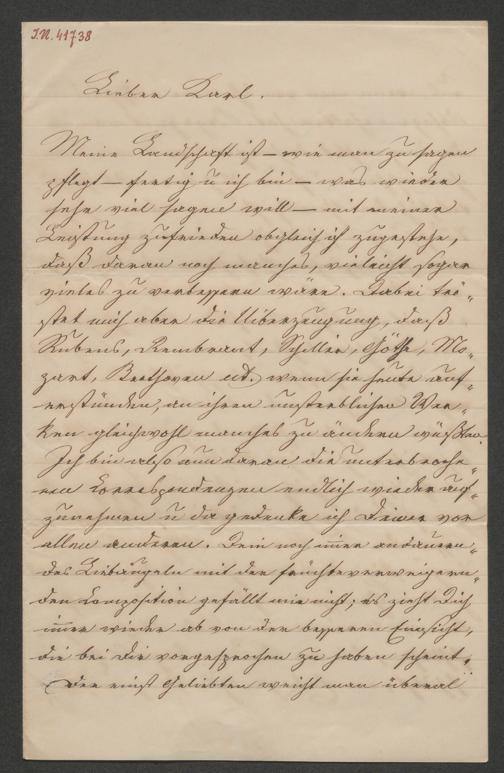 I.N. 41738
Lieber Karl.
Meine Landschaft ist – wie man zu sagen
pflegt – fertig u ich bin – was wieder
sehr viel sagen will – mit meiner
Leistung zufrieden obgleich ich zugestehe,
daß daran noch manches, vielleicht sogar
vieles zu verbessern wäre. Dabei trö-
stet mich aber die Überzeugung, daß
Rubens, Rembrant, Schiller, Göthe, Mo-
zart, Beethoven etc. wenn sie heute auf-
erstünden, an ihren unsterblichen Wer-
ken gleichwohl manches zu ändern wüßten.
Ich bin also nun daran die unterbroche-
nen Correspondenzen endlich wieder auf-
zunehmen u da gedenke ich Deiner vor
allen anderen. Dein noch immer andauern-
des Liebäugeln mit der früchteverweigern-
den Composition gefällt mir nicht; es zieht Dich
immer wieder ab von der besseren Einsicht,
die bei Dir vorgesprochen zu haben scheint.
Der einst Geliebten weicht man überal